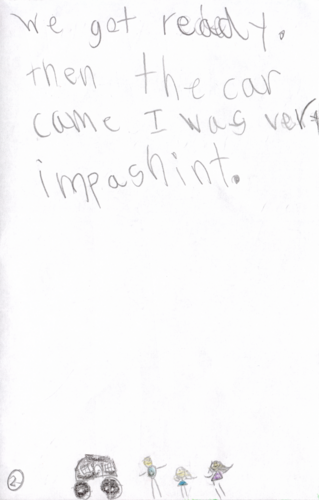 we got ready.
then the car
came I was very
impashint.
2